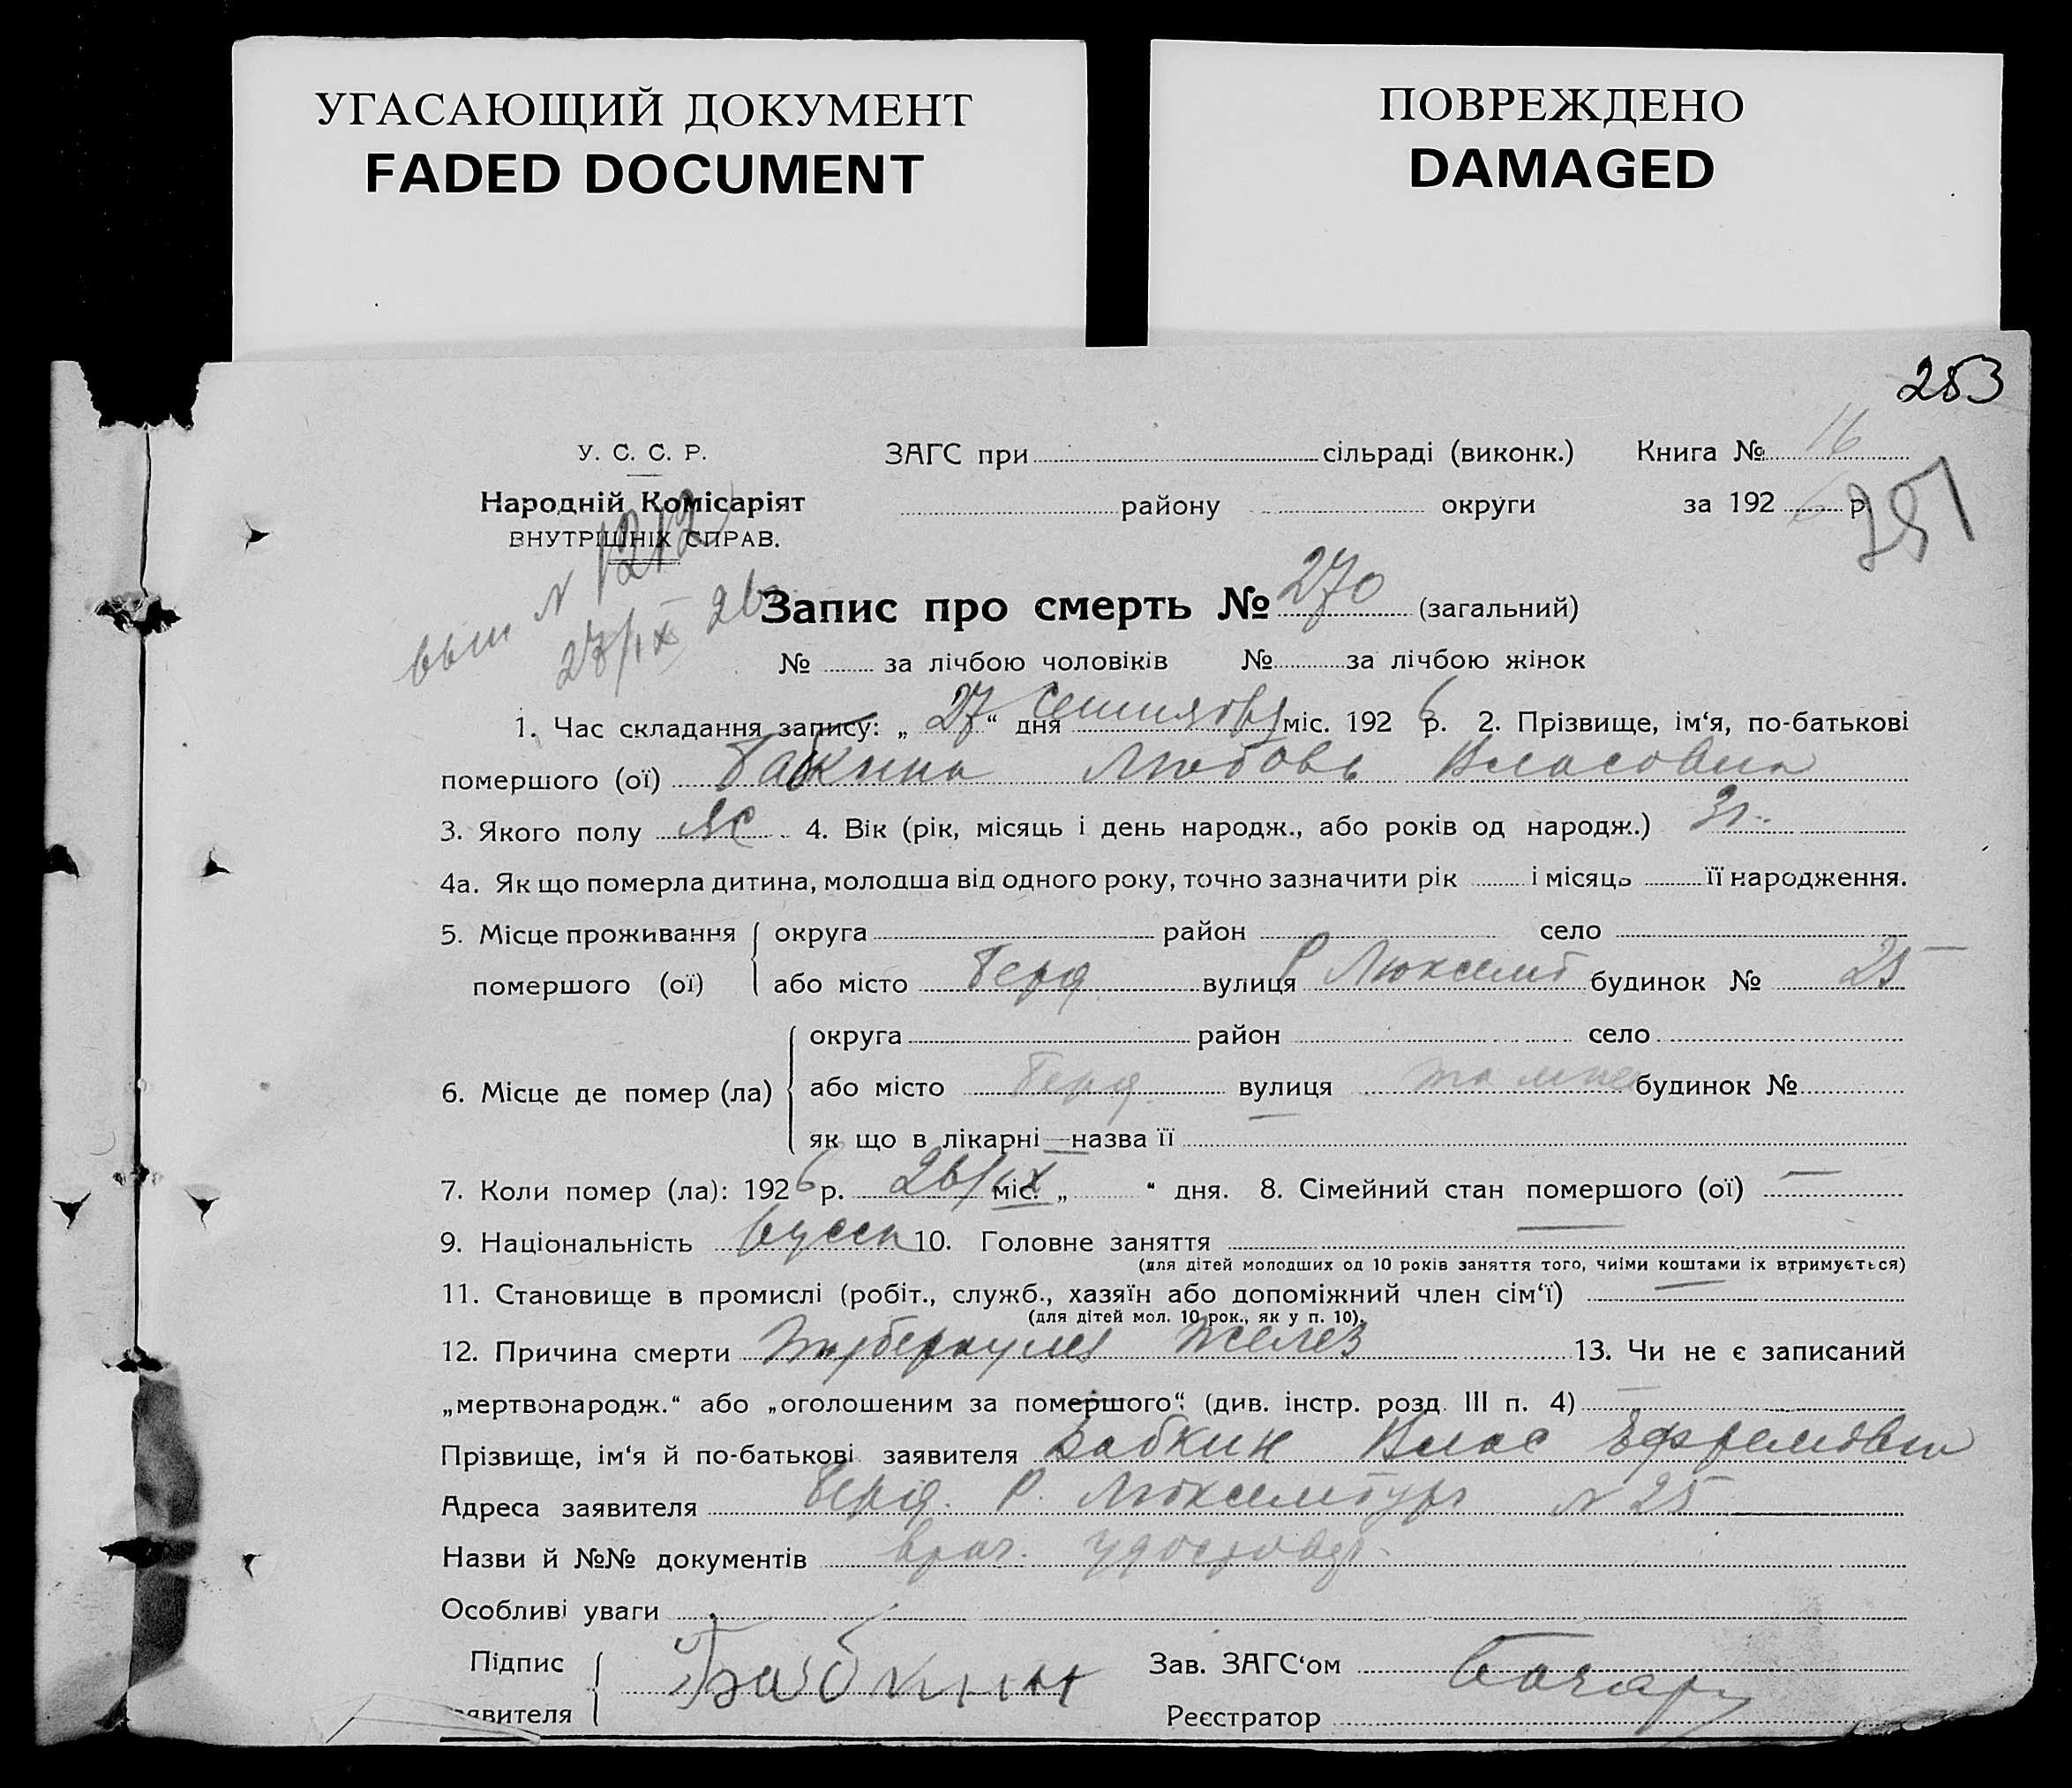 УГАСАЮЩИЙ ДОКУМЕНТ
FADED DOCUMENT
ПОВРЕЖДЕНО
DAMAGED
253
У. С. С. Р.
Народній Комісаріят
ВНУТРІШНІХ СПРАВ.
ЗАГС при сільраді (виконк.) Книга № 16
району округи за 192 6 р.
251
вып N 1212
27/IX 26
Запис про смерть № 270 (загальний)
№ за лічбою чоловіків № за лічбою жінок
1. Час складання запису: „ 27 “ дня Сентября міс. 192 6 р. 2. Прізвище, ім‘я, по-батькові
помершого (ої) Бабкина Любовь Власовна
3. Якого полу жс 4. Вік (рік, місяць і день народж., або років од народж.) 3 г.
4а. Як що померла дитина, молодша від одного року, точно зазначити рік і місяць її народження.
5. Місце проживання помершого (ої) округа район село
або місто Берд. вулиця Р Люксемб будинок № 25
6. Місце де помер (ла) округа район село
або місто Берд. вулиця та мне будинок №
як що в лікарні — назва її —
7. Коли помер (ла): 192 6 р. 26/IX міс. „ “ дня. 8. Сімейний стан помершого (ої) —
9. Національність русск 10. Головне заняття —
(для дітей молодших од 10 років заняття того, чиїми коштами іх втримується)
11. Становище в промислі (робіт., служб., хазяїн або допоміжний член сім‘ї) —
(для дітей мол. 10 рок., як у п. 10).
12. Причина смерти Туберкулез желез 13. Чи не є записаний
„мертвонародж.“ або „оголошеним за помершого“: (див. інстр. розд. III п. 4) —
Прізвище, ім‘я й по-батькові заявителя Бабкин Влас Ефремович
Адреса заявителя Берд. Р. Люксембург N 25
Назви й №№ документів врач. удостовер.
Особливі уваги
Підпис заявителя Бабкин Зав. ЗАГС‘ом
Реєстратор